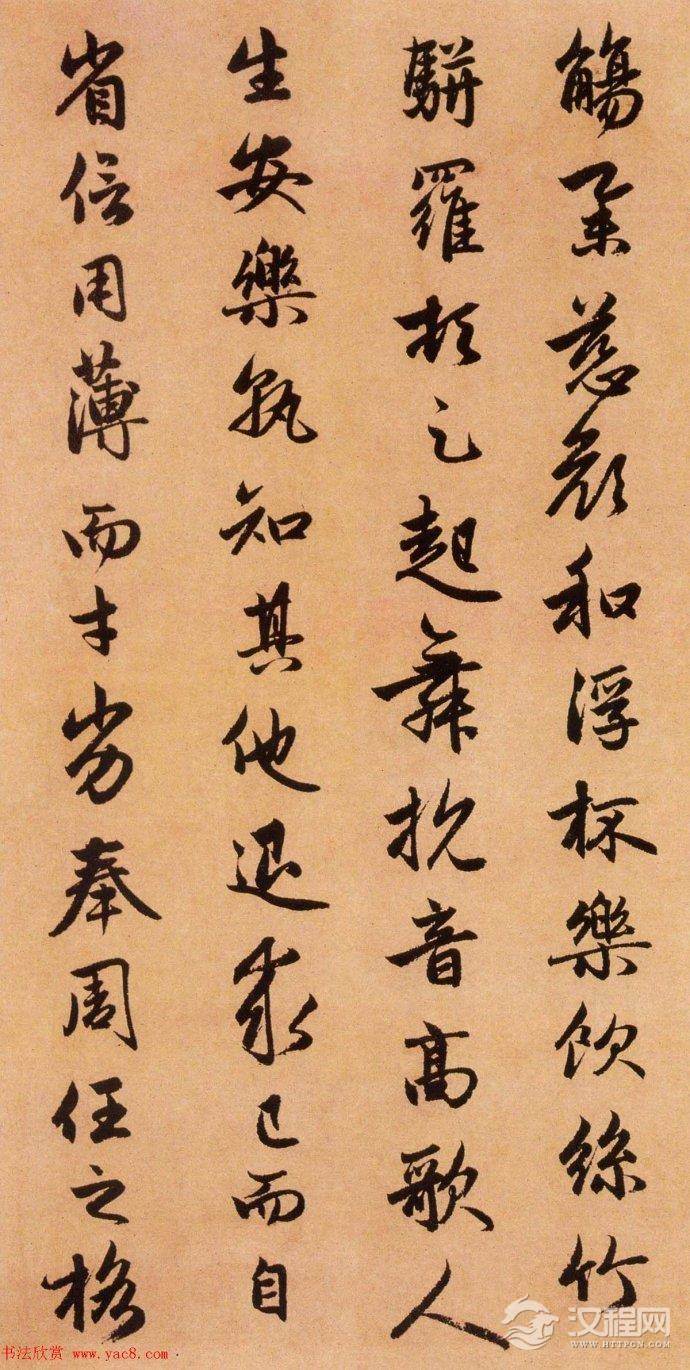 觴舉慈顏和浮杯樂飲絲竹
駢羅頓足起舞抗音高歌人
生安樂孰知其他退求己而自
省信用薄而才劣奉周任之格
汉程网
WWW.HTTPCN.COM
书法欣赏 www.yac8.com